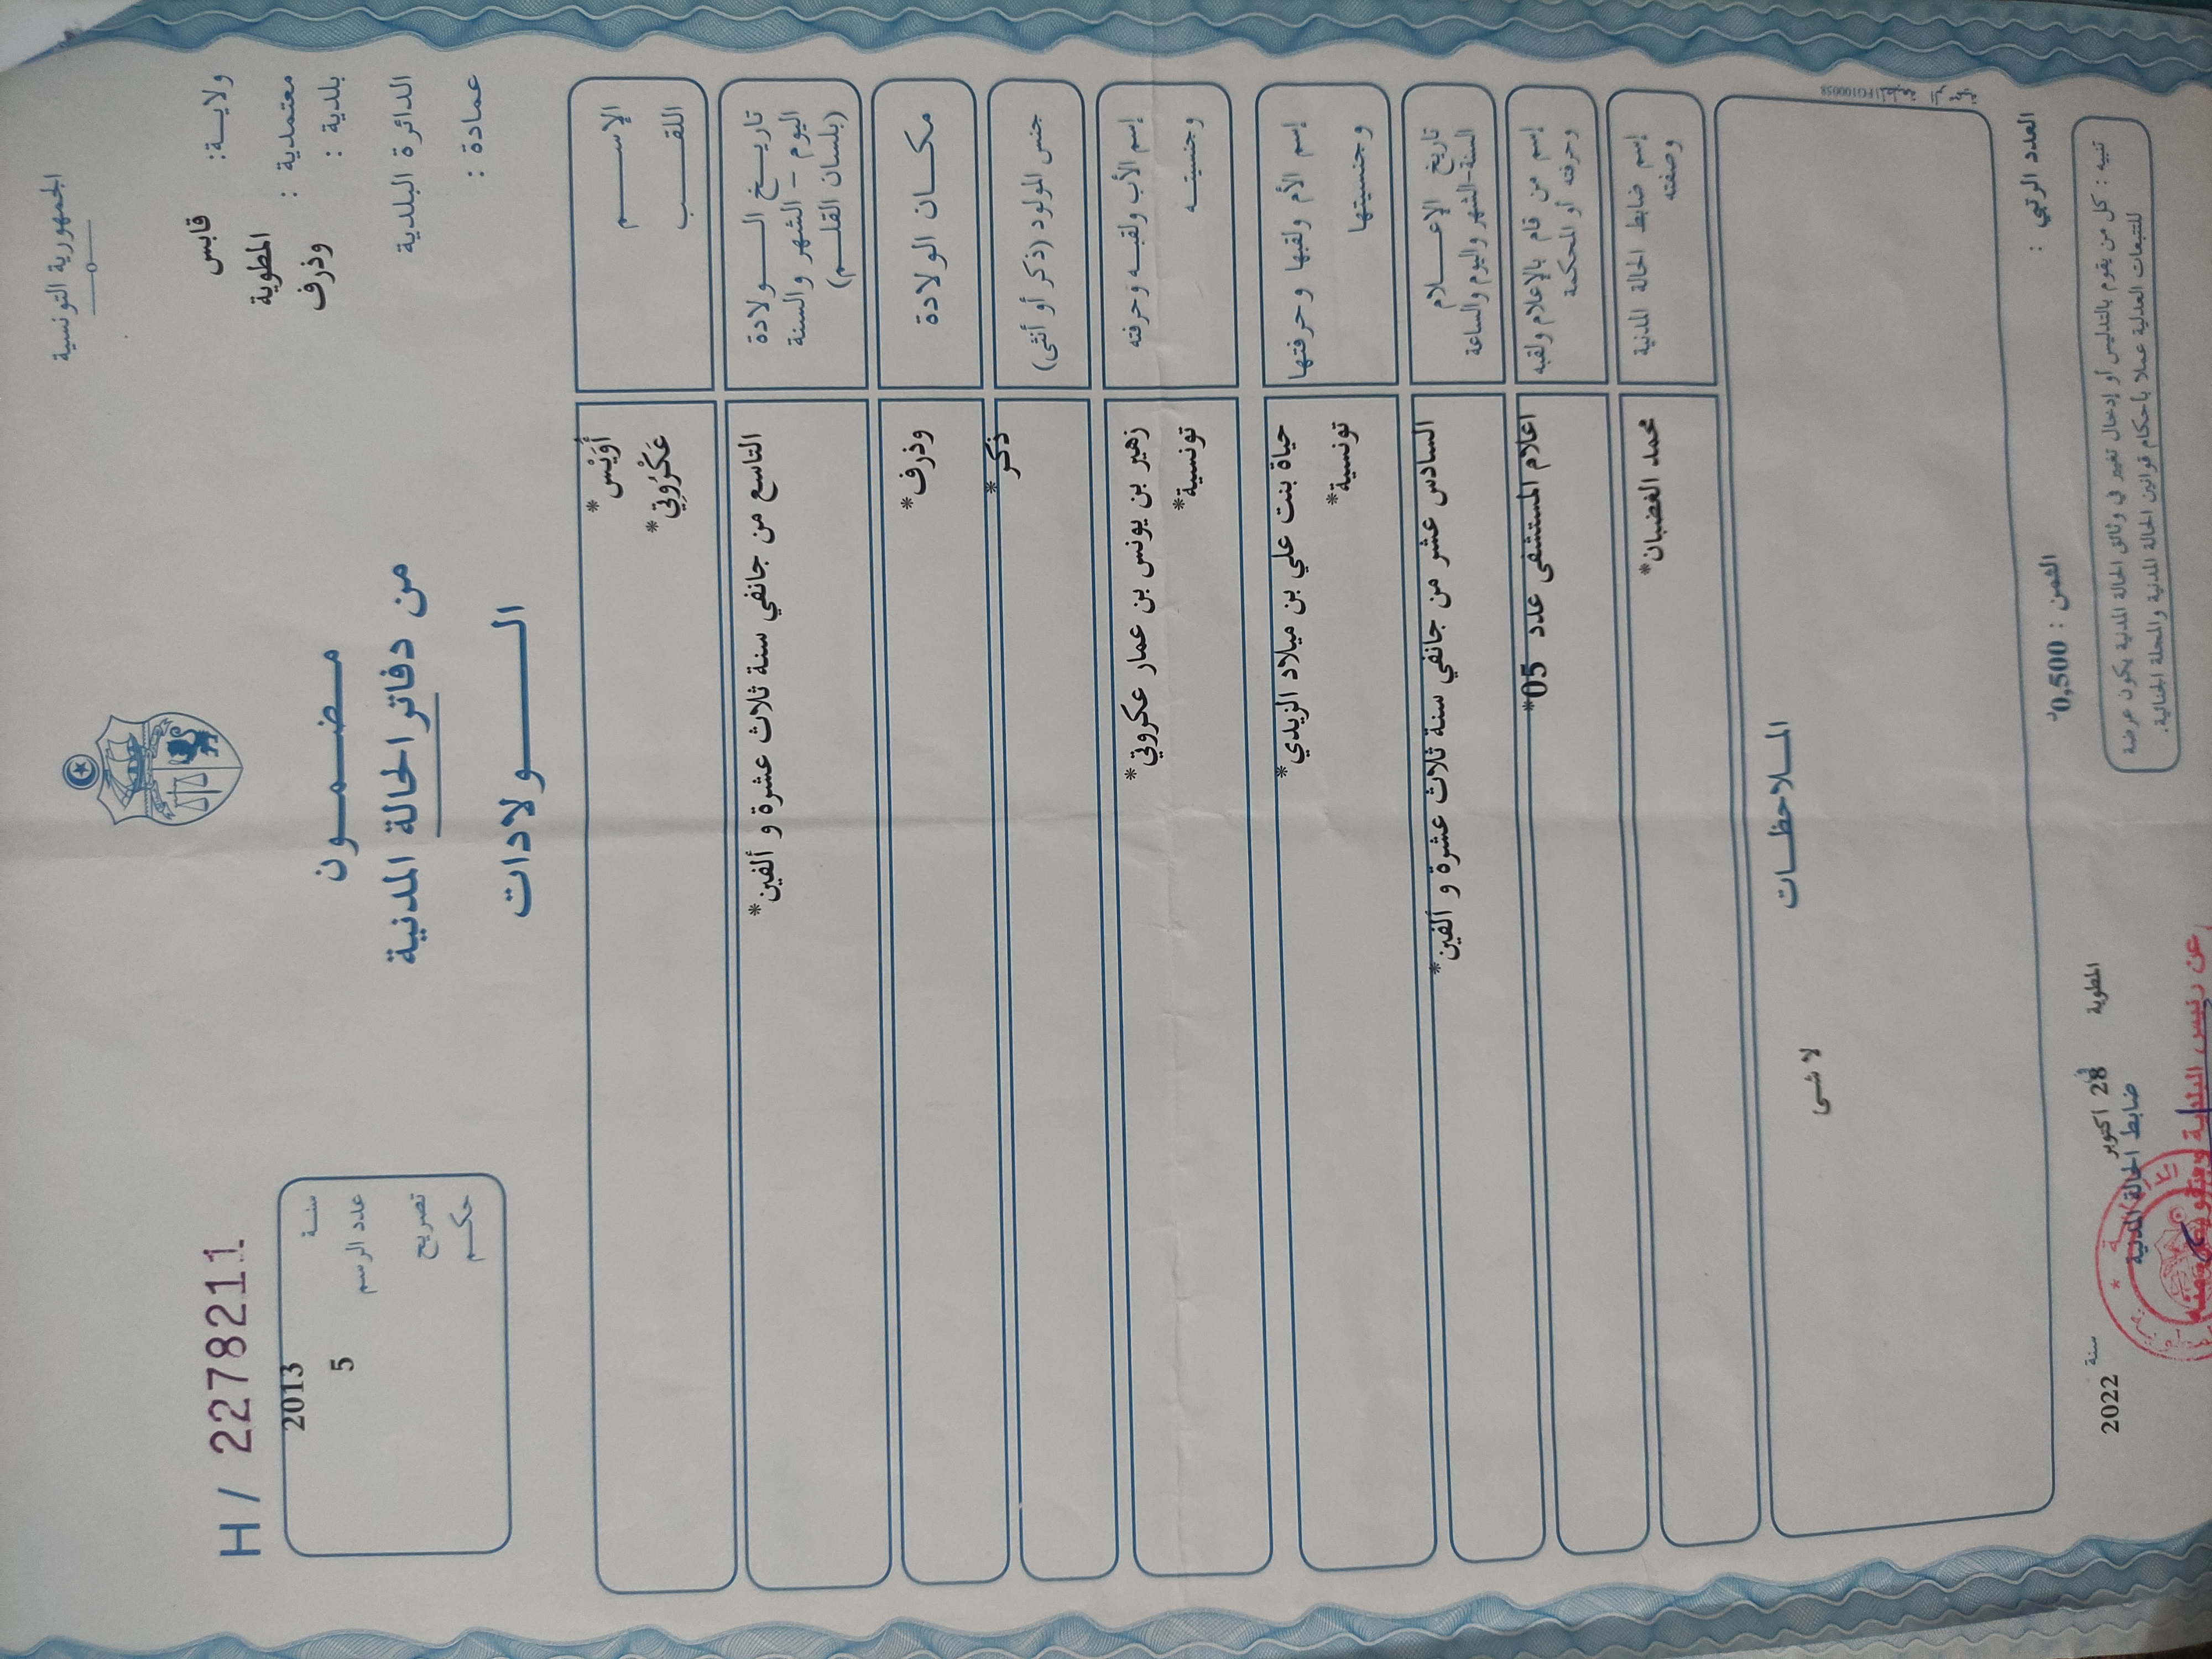 الجمهورية التونسية
ولايــة: قابس
معتمدية : المطوية
بلدية : وذرف
الدائرة البلدية
عمادة :
مـضـمـــون
من دفاتر الحالة المدنية
الـــــولادات
H / 2278211
سنـة 2013
عدد الرسم 5
تصريح
حكـم
الإســـــم أُوَيْس*
اللقـــب عَكْرُوتِي*
تاريـخ الــولادة
اليوم - الشهر والسنة
(بلسان القلــم)
التاسع من جانفي سنة ثلاث عشرة و ألفين*
مكــان الولادة وذرف*
جنس المولود (ذكر أو أنثى) ذكر*
إسم الأب ولقبـه وحرفته زهير بن يونس بن عمار عكروتي*
وجنسيتــه تونسية*
إسم الأم ولقبها وحرفتها حياة بنت علي بن ميلاد الزيدي*
وجنسيتها تونسية*
تاريخ الإعــــلام
السنة-الشهر واليوم والساعة
السادس عشر من جانفي سنة ثلاث عشرة و ألفين*
إسم من قام بالإعلام ولقبه
وحرفته أو المحكمة
اعلام المستشفى عدد 05*
إسم ضابط الحالة المدنية
وصفته
محمد الغضبان*
المــلاحظــات
لا شئ
العدد الرتبي :
الثمن : 0,500د
تنبيه : كل من يقوم بالتدليس أو إدخال تغيير في وثائق الحالة المدنية يكون عرضة
للتتبعات العدلية عملا بأحكام قوانين الحالة المدنية والمجلة الجنائية.
المطوية في 28 اكتوبر سنة 2022
ضابط الحالة المدنية
عن رئيس البلدية وبتفويض منه